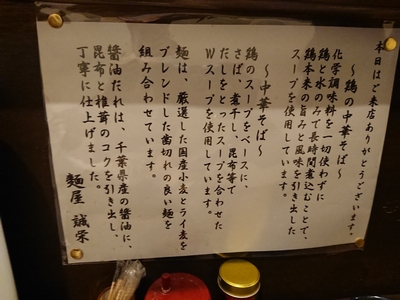 本日はご来店ありがとうございます。
～鶏の中華そば～
化学調味料を一切使わずに
鶏と水のみで長時間煮込むことで、
鶏本来の旨みと風味を引き出した
スープを使用しています。
～中華そば～
鶏のスープをベースに、
さば、煮干し、昆布等で
だしをとったスープを合わせた
Wスープを使用しています。
麺は、厳選した国産小麦とライ麦を
ブレンドした歯切れの良い麺を
組み合わせています。
醤油だれは、千葉県産の醤油に、
昆布と椎茸のコクを引き出し、
丁寧に仕上げました。
麺屋 誠栄